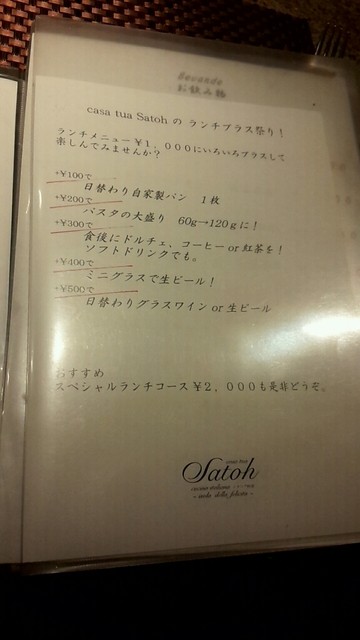 Bevande
お飲み物
casa tua Satoh の ランチプラス祭り！
ランチメニュー￥１，０００にいろいろプラスして
楽しんでみませんか？
+￥100で
日替わり自家製パン １枚
+￥200で
パスタの大盛り 60g→120gに！
+￥300で
食後にドルチェ、コーヒー or 紅茶を！
ソフトドリンクでも。
+￥400で
ミニグラスで生ビール！
+￥500で
日替わりグラスワイン or 生ビール
おすすめ
スペシャルランチコース￥２，０００も是非どうぞ。
casa tua
Satoh